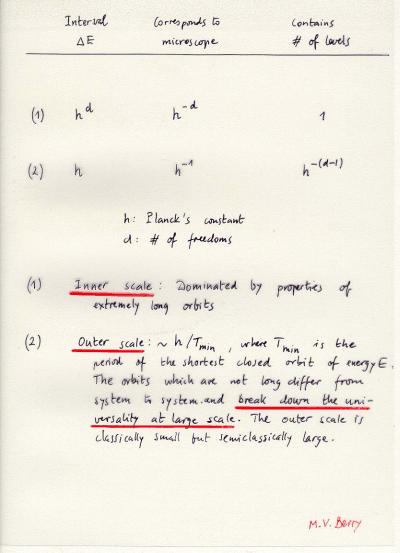 Interval Corresponds to Contains
ΔE microscope # of levels
(1) h^d h^-d 1
(2) h h^-1 h^-(d-1)
h: Planck's constant
d: # of freedoms
(1) Inner scale: Dominated by properties of
extremely long orbits
(2) Outer scale: ~ h/Tmin, where Tmin is the
period of the shortest closed orbit of energy E.
The orbits which are not long differ from
system to system and break down the uni-
versality at large scale. The outer scale is
classically small but semiclassically large.
M.V. Berry